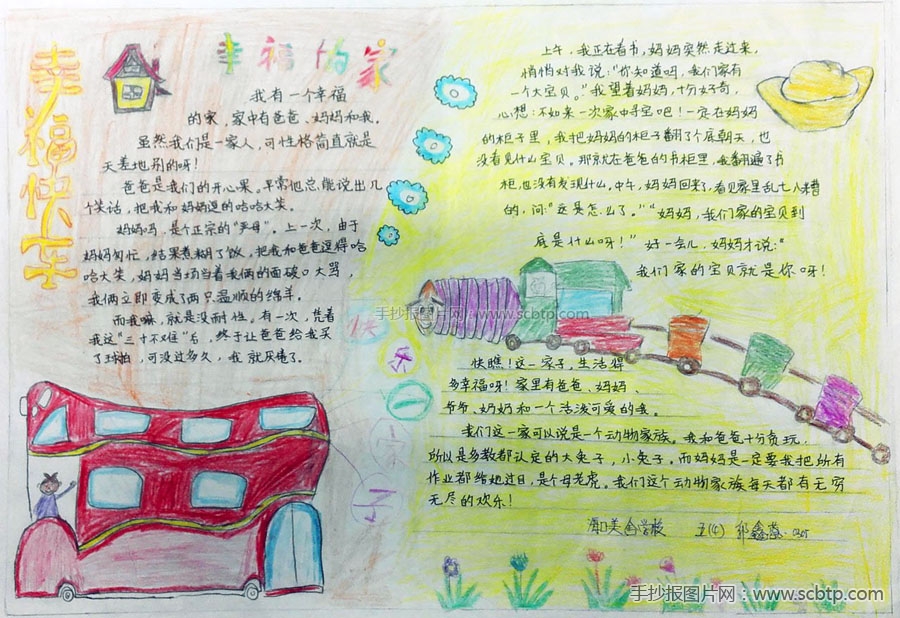 幸福快车
幸福的家
我有一个幸福
的家，家中有爸爸、妈妈和我。
虽然我们是一家人，可性格简直就是
天差地别的呀！
爸爸是我们的开心果。平常他总能说出几
个笑话，把我和妈妈逗的哈哈大笑。
妈妈吗，是个正宗的“严母”。上一次，由于
妈妈匆忙，结果煮糊了饭，把我和爸爸逗得哈
哈大笑，妈妈当场当着我俩的面破口大骂，
我俩立即变成了两只温顺的绵羊。
而我嘛，就是没耐性，有一次，凭着
我这“三寸不烂”舌，终于让爸爸给我买
了球拍，可没过多久，我就厌倦了。
上午，我正在看书，妈妈突然走过来，
悄悄对我说：“你知道吗，我们家有
一个大宝贝。”我望着妈妈，十分好奇，
心想：不如来一次家中寻宝吧！一定在妈妈
的柜子里，我把妈妈的柜子翻了个底朝天，也
没看见什么宝贝。那就在爸爸的书柜里，我翻遍了书
柜也没有发现什么。中午，妈妈回来了，看见家里乱七八糟
的，问：“这是怎么了。”“妈妈，我们家的宝贝到
底是什么呀！”好一会儿，妈妈才说：“
我们家的宝贝就是你呀！
快
乐
快瞧！这一家子，生活得
多幸福呀！家里有爸爸、妈妈、
爷爷、奶奶和一个活泼可爱的我。
我们这一家可以说是一个动物家族。我和爸爸十分贪玩，
所以是多数都认定的大兔子，小兔子。而妈妈是一定要我把所有
作业都给她过目，是个母老虎。我们这个动物家族每天都有无穷
无尽的欢乐！
海口美舍学校 五(4) 郭鑫
手抄报图片网：www.scbtp.com
手抄报图片网：www.scbtp.com